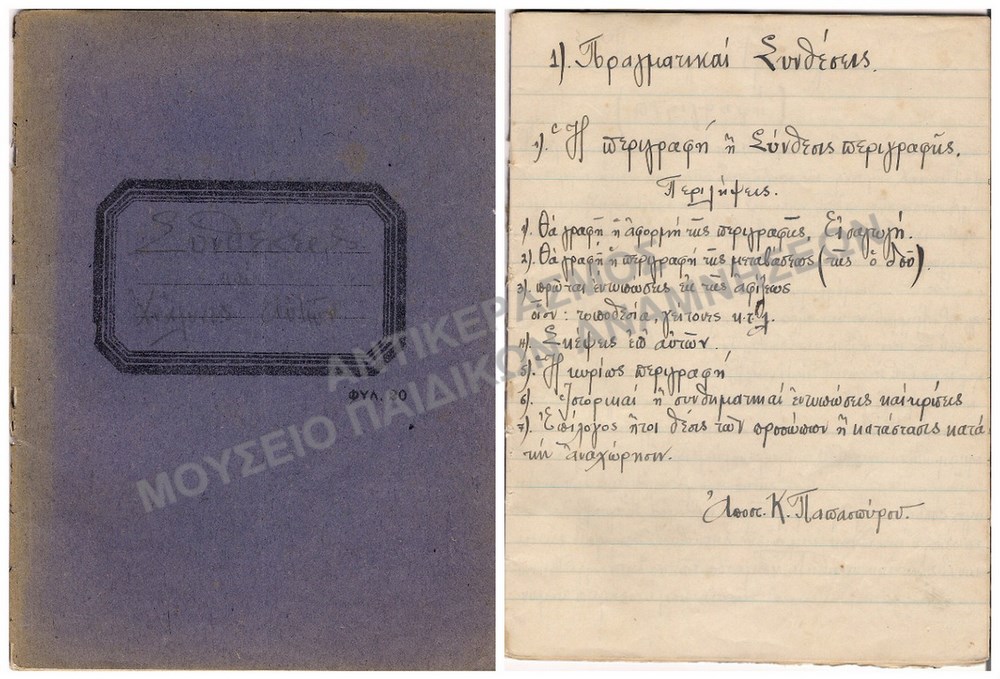 Συνθέσεις
και
ΦΥΛ. 20
1). Πραγματικαί Συνθέσεις.
1). Ἡ περιγραφή ἢ Σύνθεσις περιγραφῆς.
Περιλήψεις.
1). Θά γραφῇ ἡ ἀφορμή τῆς περιγραφῆς. Εἰσαγωγή.
2). Θά γραφῇ ἡ περιγραφή τῆς μεταβάσεως (τῆς ὁδοῦ).
3). πρῶται ἐντυπώσεις ἐκ τῆς ἀφίξεως
οἷον: τοποθεσία, γείτονες κ.τ.λ.
4). Σκέψεις ἐπ' αὐτῶν.
5). Ἡ κυρίως περιγραφή
6). Ἱστορικαί ἢ συνθηματικαί ἐντυπώσεις καί κρίσεις
7). Ἐπίλογος ἤτοι θέσις τῶν προσώπων ἢ κατάστασις κατά
τήν ἀναχώρησιν.
Ἀποστ. Κ. Παπασπύρου.
ΑΝΤΙΚΕΡΑΣΜΟΣ
ΜΟΥΣΕΙΟ ΠΑΙΔΙΚΩΝ ΑΝΑΜΝΗΣΕΩΝ